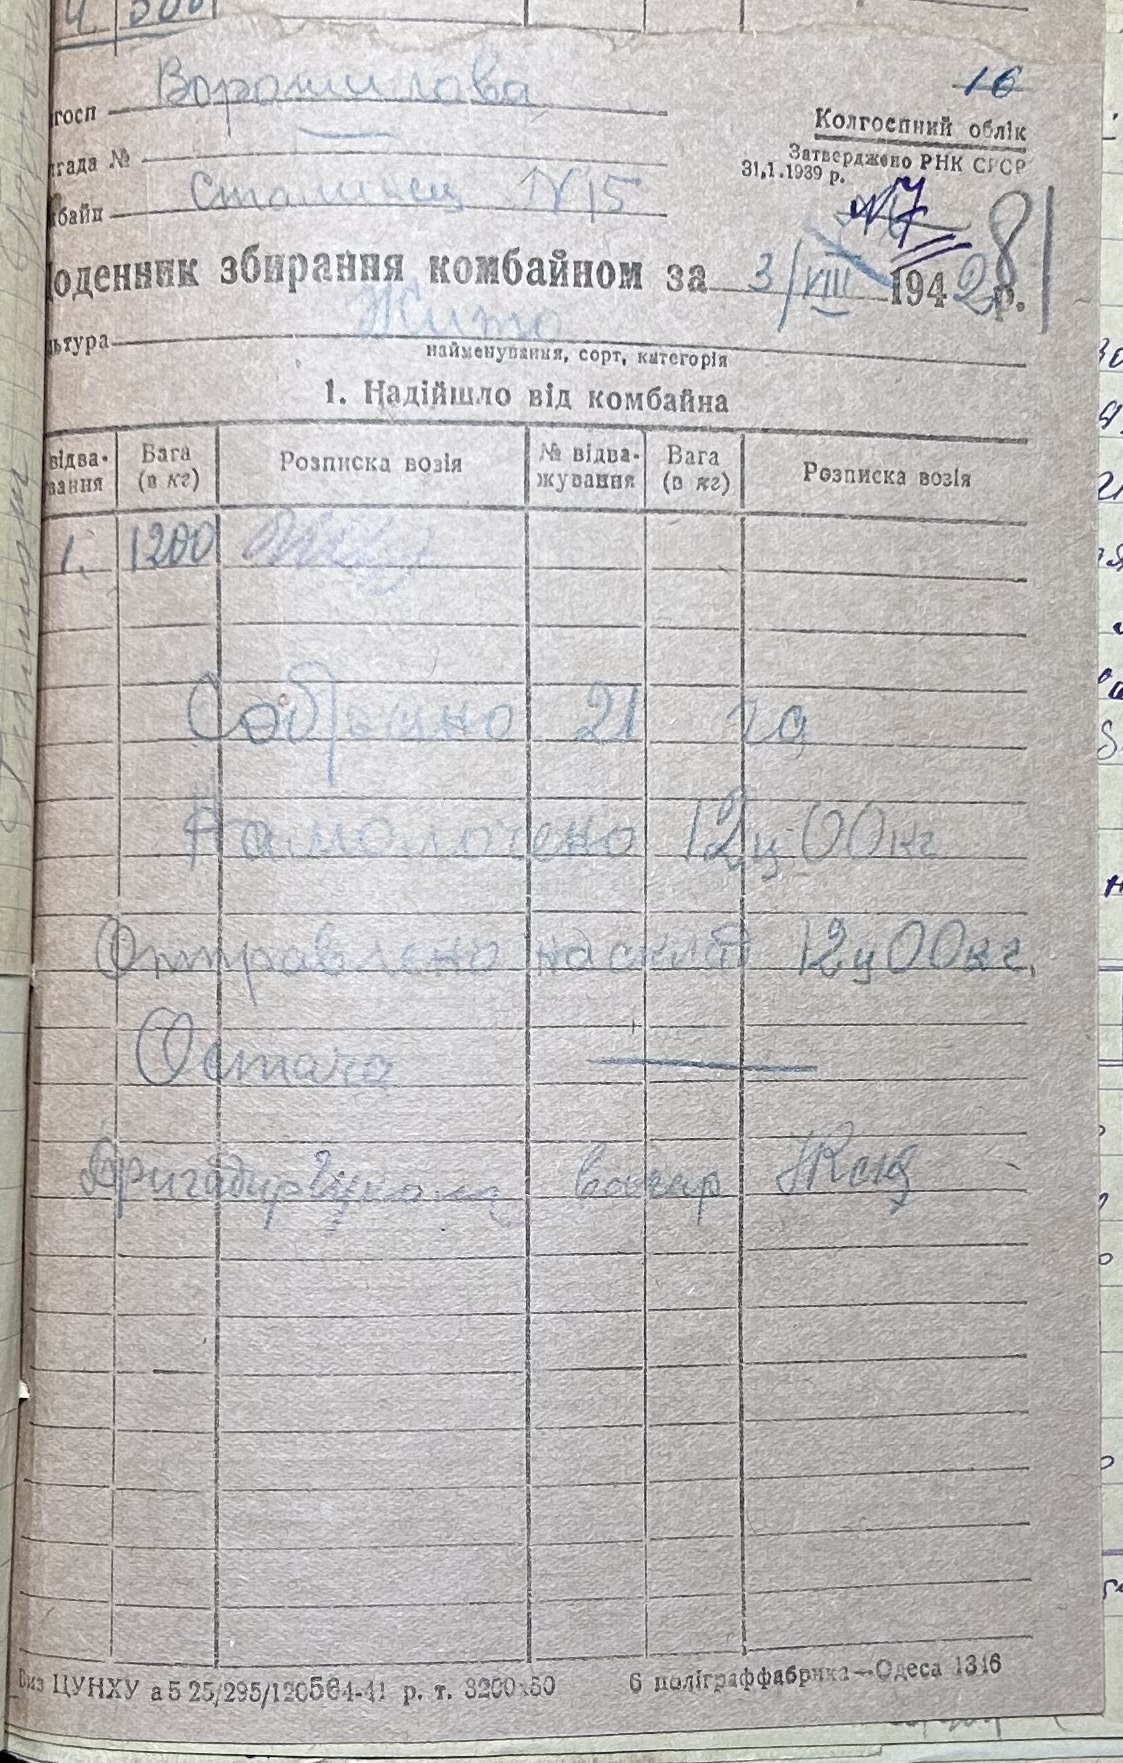 16
госп Ворошилова
Колгоспний облік
гада №
Затверджено РНК СРСР
31.1.1939 р.
байн Сталинец №15
№7
81
оденник збирання комбайном за 3/VIII 1942 р.
ьтура Жито
найменування, сорт, категорія
1. Надійшло від комбайна
відва- Вага Розписка возія № відва- Вага Розписка возія
вання (в кг) жування (в кг)
1. 1200
Собрано 21 га
Намолочено 12ц 00кг
Отправлено на склад 12ц 00кг.
Остача —
Бригадир вагар
ЦУНХУ а5 25/295/120564-41 р. т. 3200х50 6 поліграффабрика—Одеса 1346